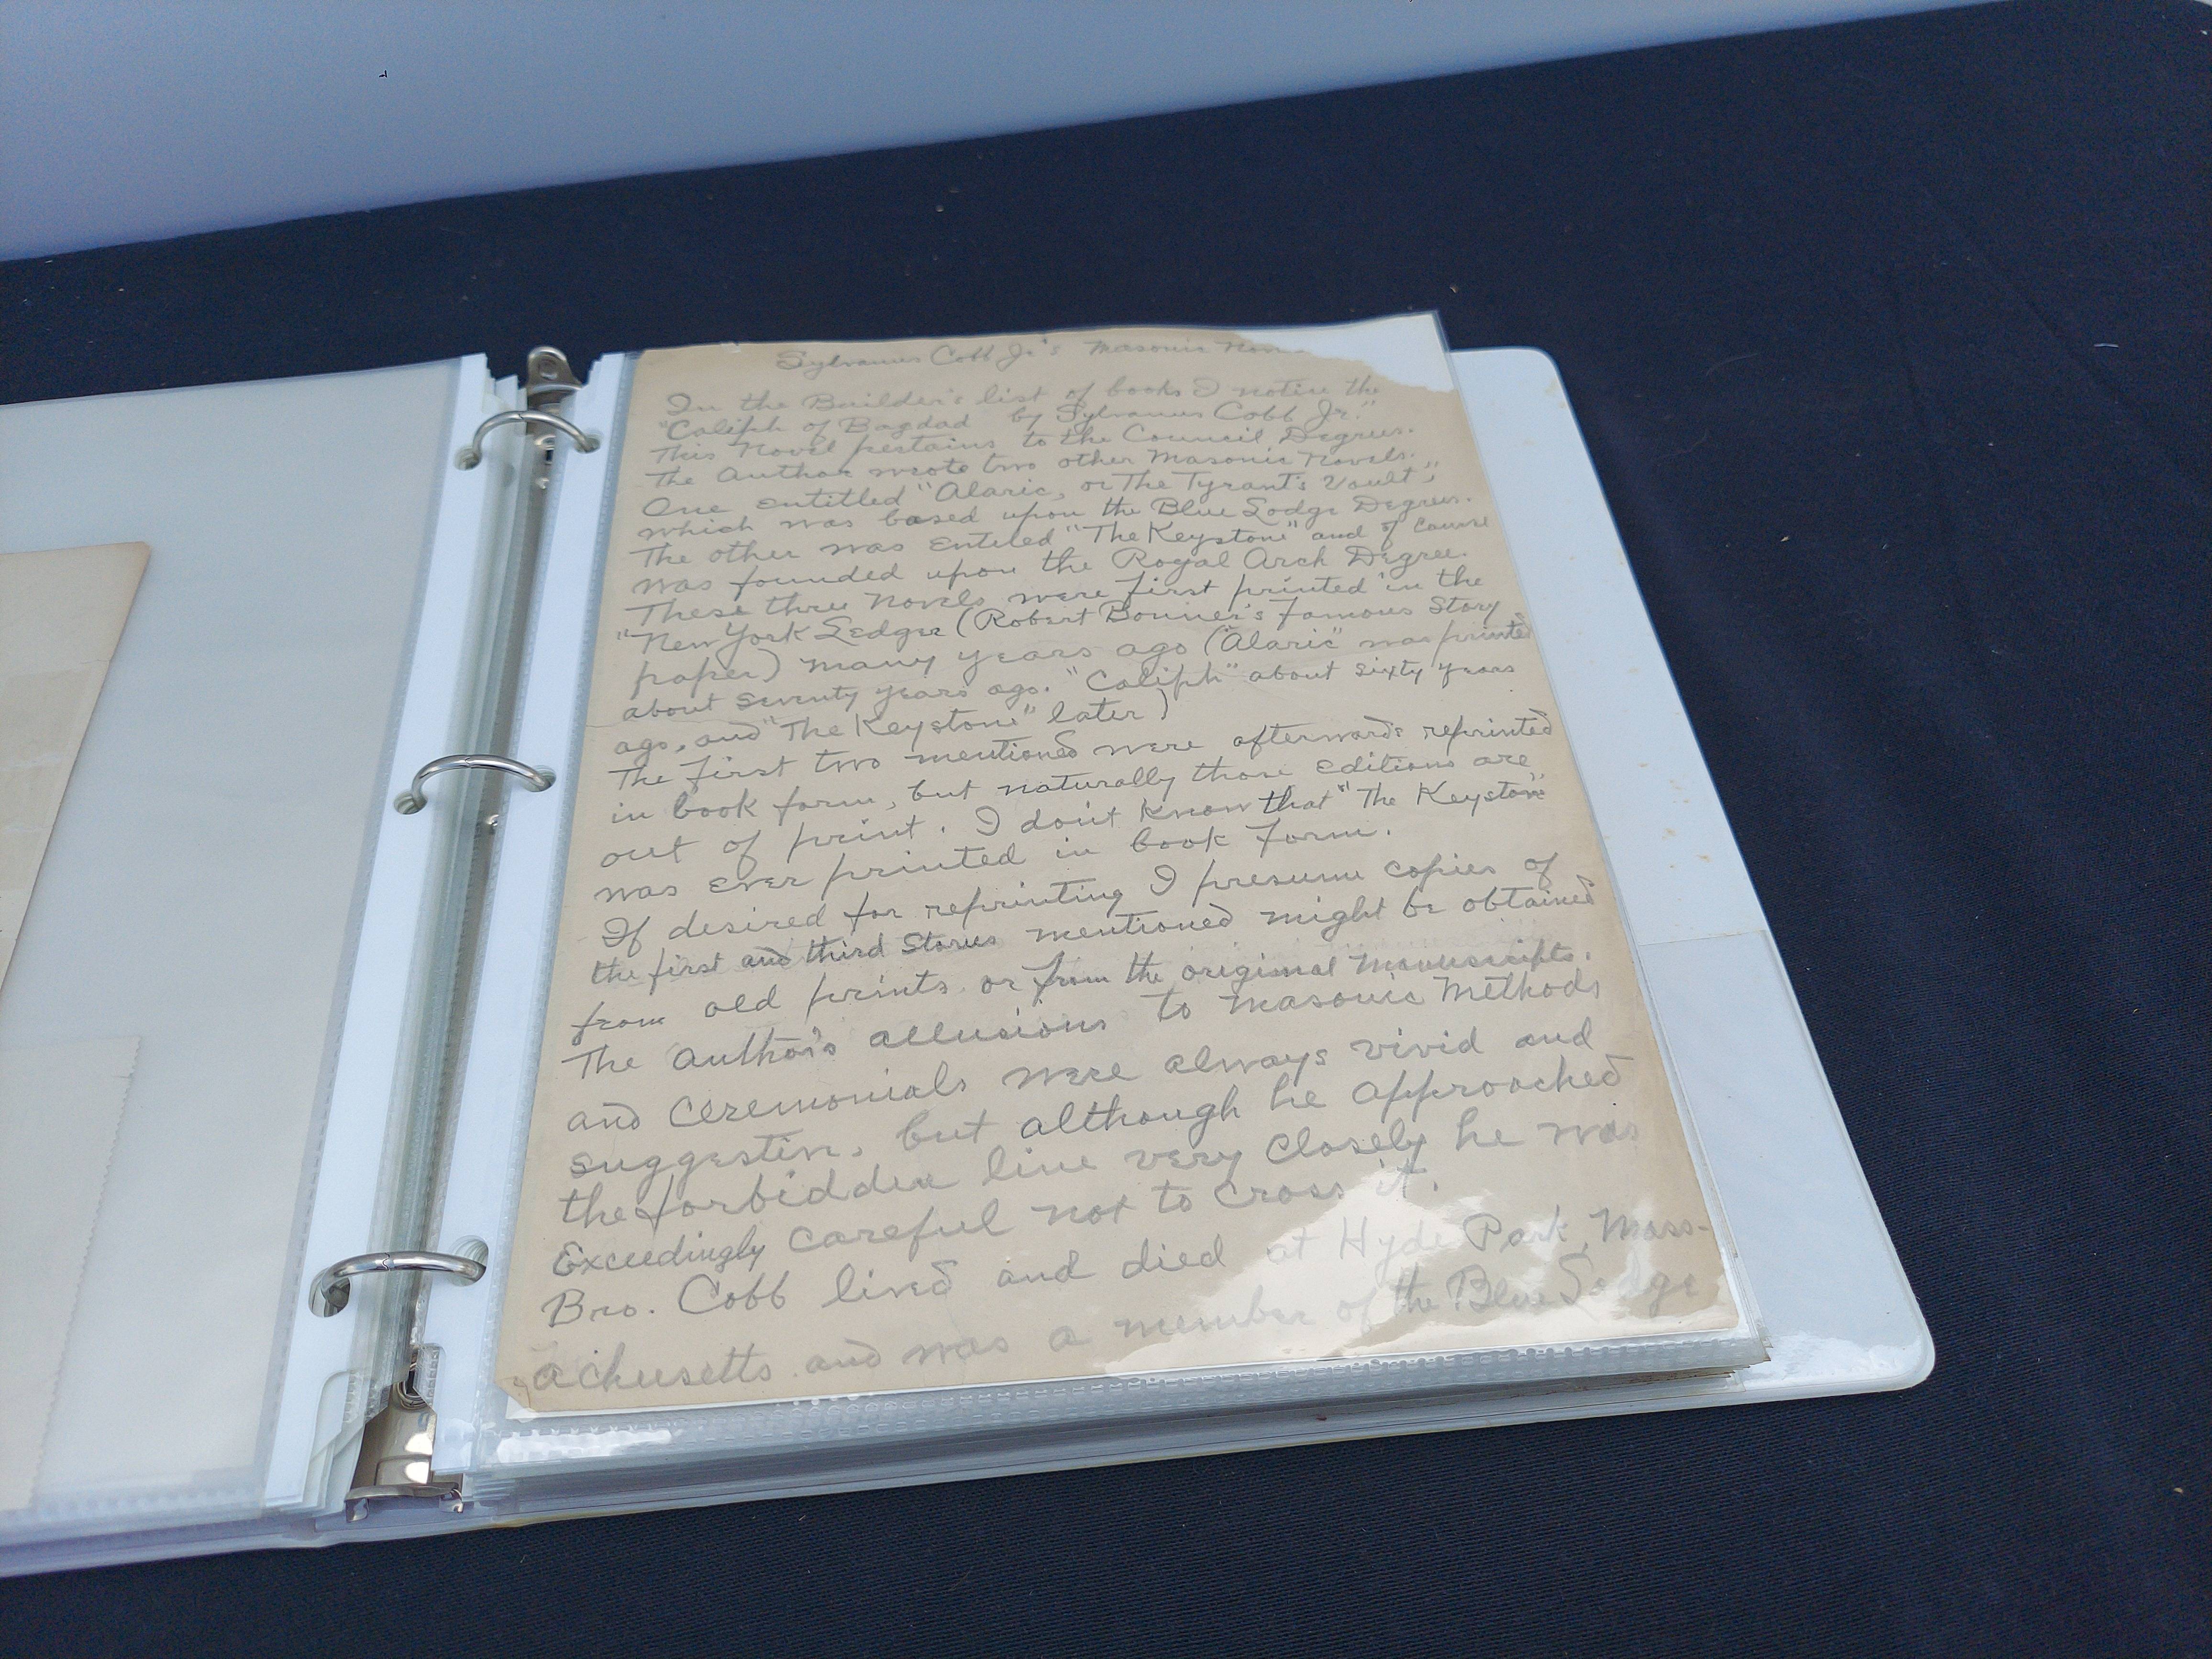 Sylvanus Cobb Jr's Masonic
In the Builder's list of books I notice the
"Caliph of Bagdad by Sylvanus Cobb Jr."
This Novel pertains to the Council Degrees.
The Author wrote two other Masonic Novels.
One entitled "Alaric, or The Tyrant's Vault",
which was based upon the Blue Lodge Degrees.
The other was Entitled "The Keystone" and of Course
was founded upon the Royal Arch Degree.
These three Novels were first printed in the
"New York Ledger (Robert Bonner's famous Story
paper) many years ago ("Alaric" was printed
about seventy years ago. "Caliph" about sixty years
ago, and "The Keystone" later)
The first two mentioned were afterwards reprinted
in book form, but naturally those editions are
out of print. I don't know that "The Keystone"
was ever printed in book form.
If desired for reprinting I presume copies of
the first and third Stories mentioned might be obtained
from old prints or from the original Manuscripts.
The author's allusions to Masonic Methods
and Ceremonials were always vivid and
suggestive, but although he approached
the forbidden line very closely he was
Exceedingly careful not to cross it.
Bro. Cobb lived and died at Hyde Park, Mass-
achusetts and was a member of the Blue Lodge